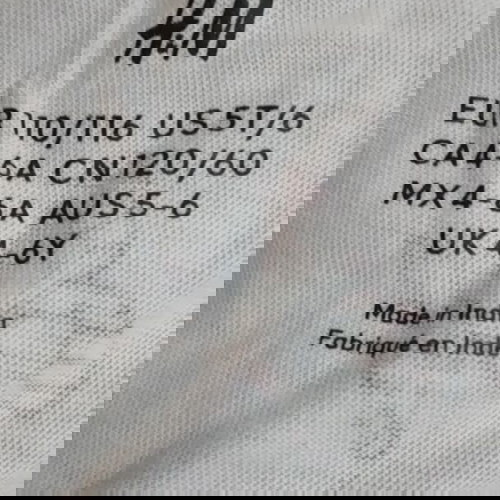 H&M
EUR 110/116 US 5T/6
CA 4-6A CN 120/60
MX 4-6A AUS 5-6
UK 4-6Y
Made in India
Fabriqué en Inde